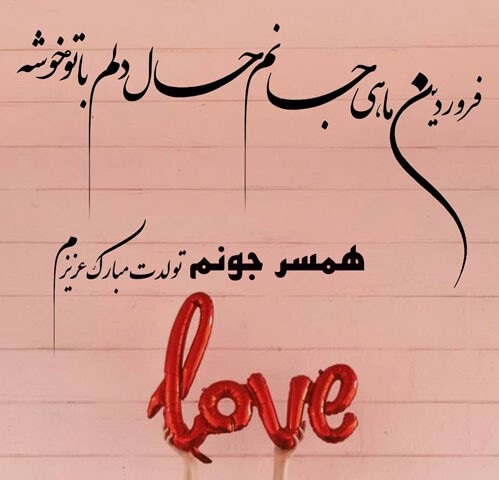 فروردین ماهی جانم حال دلم با تو خوشه
همسر جونم تولدت مبارک عزیزم
love